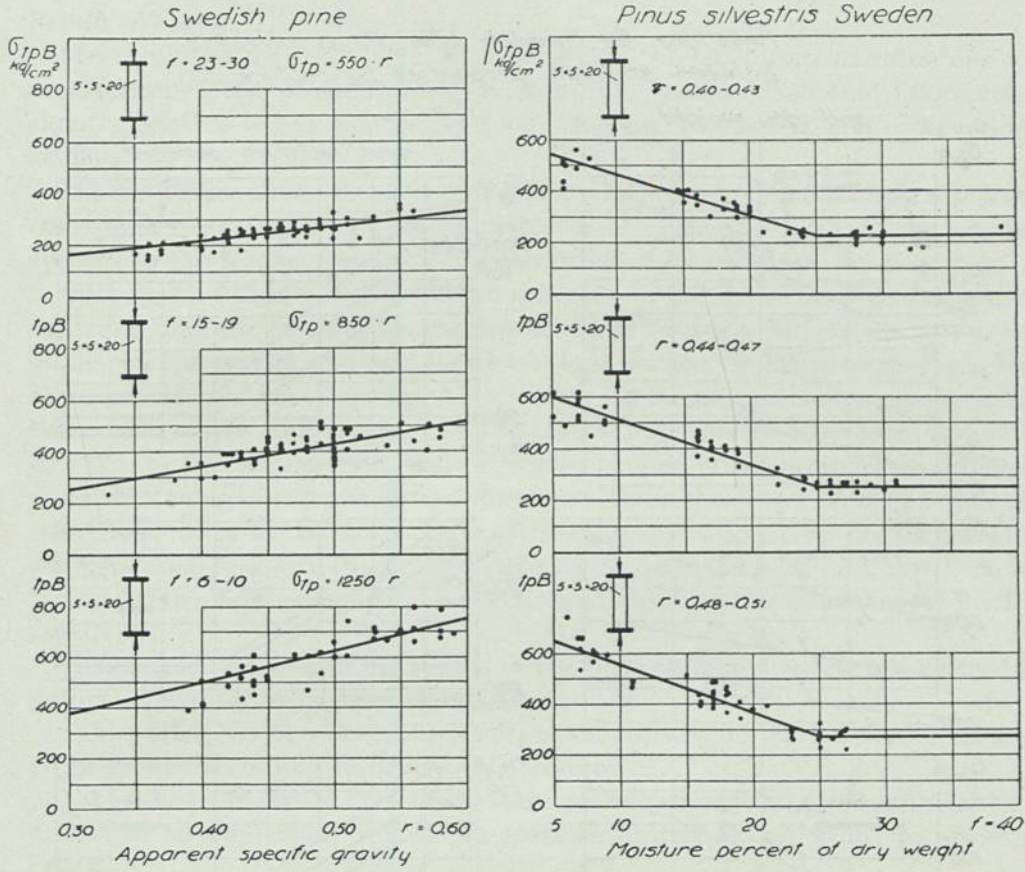 Swedish pine
σtpB
kg/cm²
5×5×20
f = 23-30
σtp = 550·r
800
600
400
200
0
tpB
5×5×20
f = 15-19
σtp = 850·r
800
600
400
200
0
tpB
5×5×20
f = 6-10
σtp = 1250·r
800
600
400
200
0
0,30 0,40 0,50 r = 0,60
Apparent specific gravity
Pinus silvestris Sweden
σtpB
kg/cm²
5×5×20
r = 0,40-0,43
600
400
200
0
tpB
5×5×20
r = 0,44-0,47
600
400
200
0
tpB
5×5×20
r = 0,48-0,51
600
400
200
0
5 10 20 30 f = 40
Moisture percent of dry weight